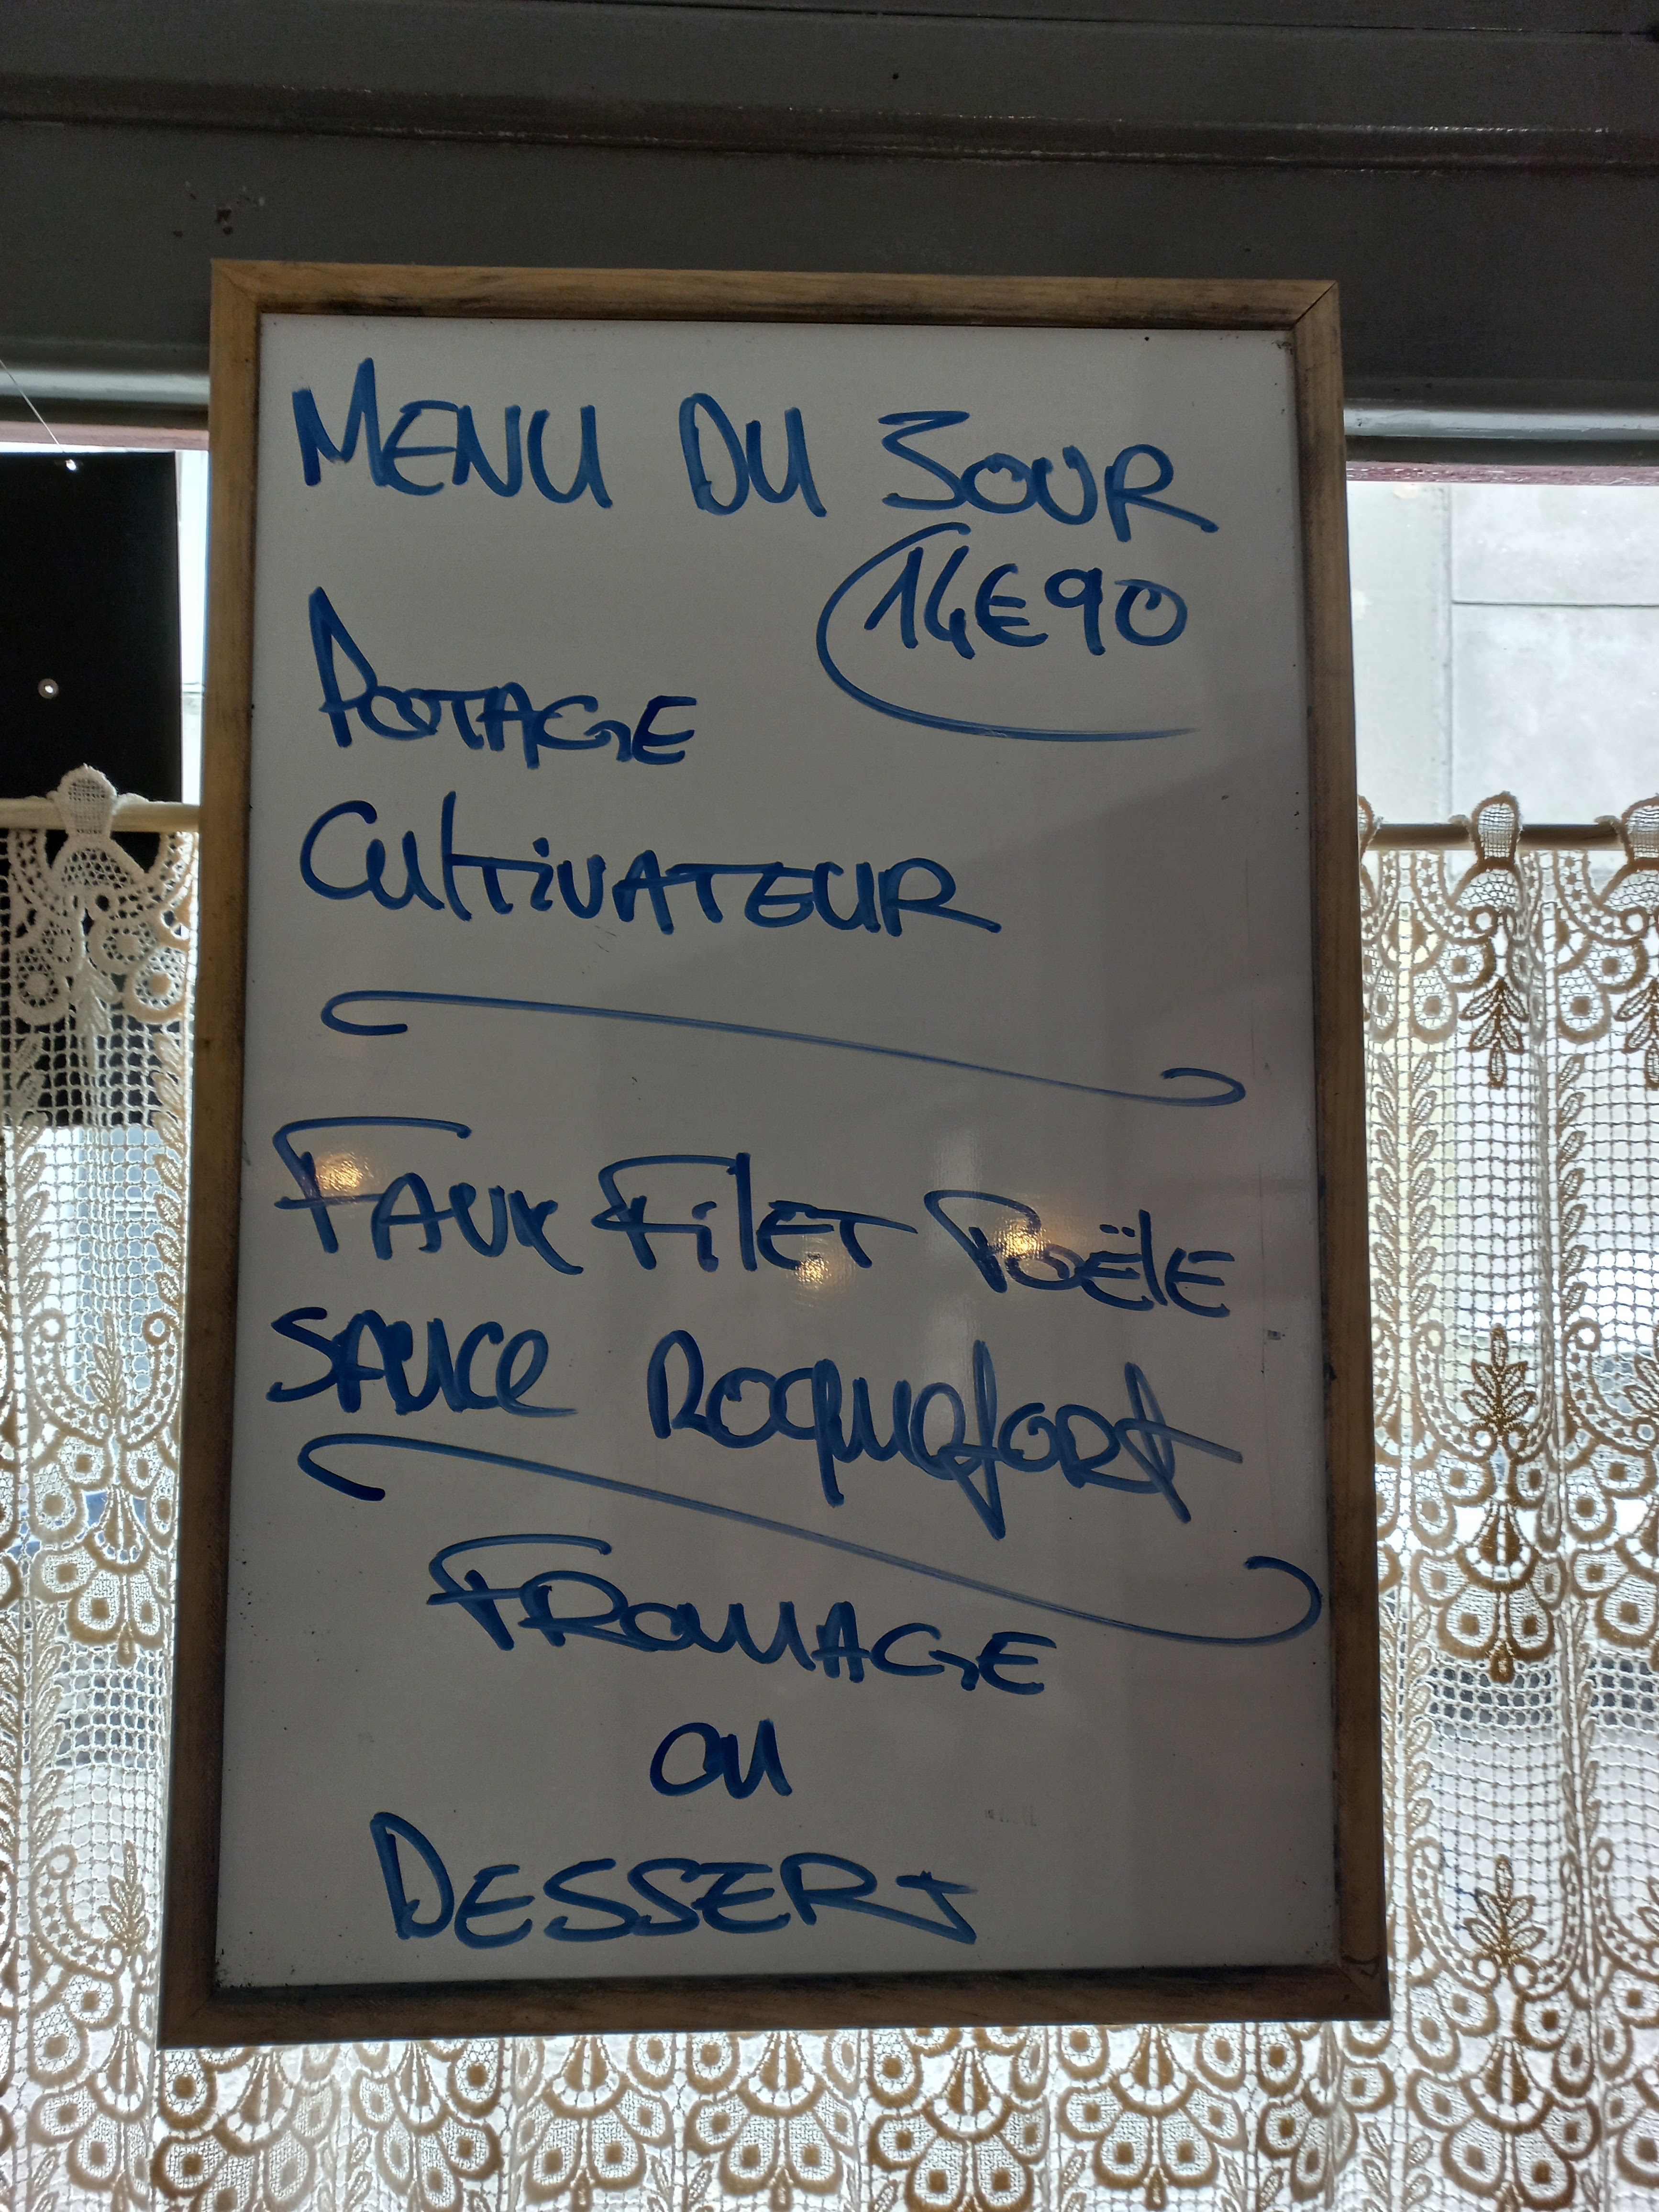 MENU DU JOUR
14€90
POTAGE
CULTIVATEUR
FAUX FILET POËLE
SAUCE ROQUEFORT
FROMAGE
OU
DESSERT